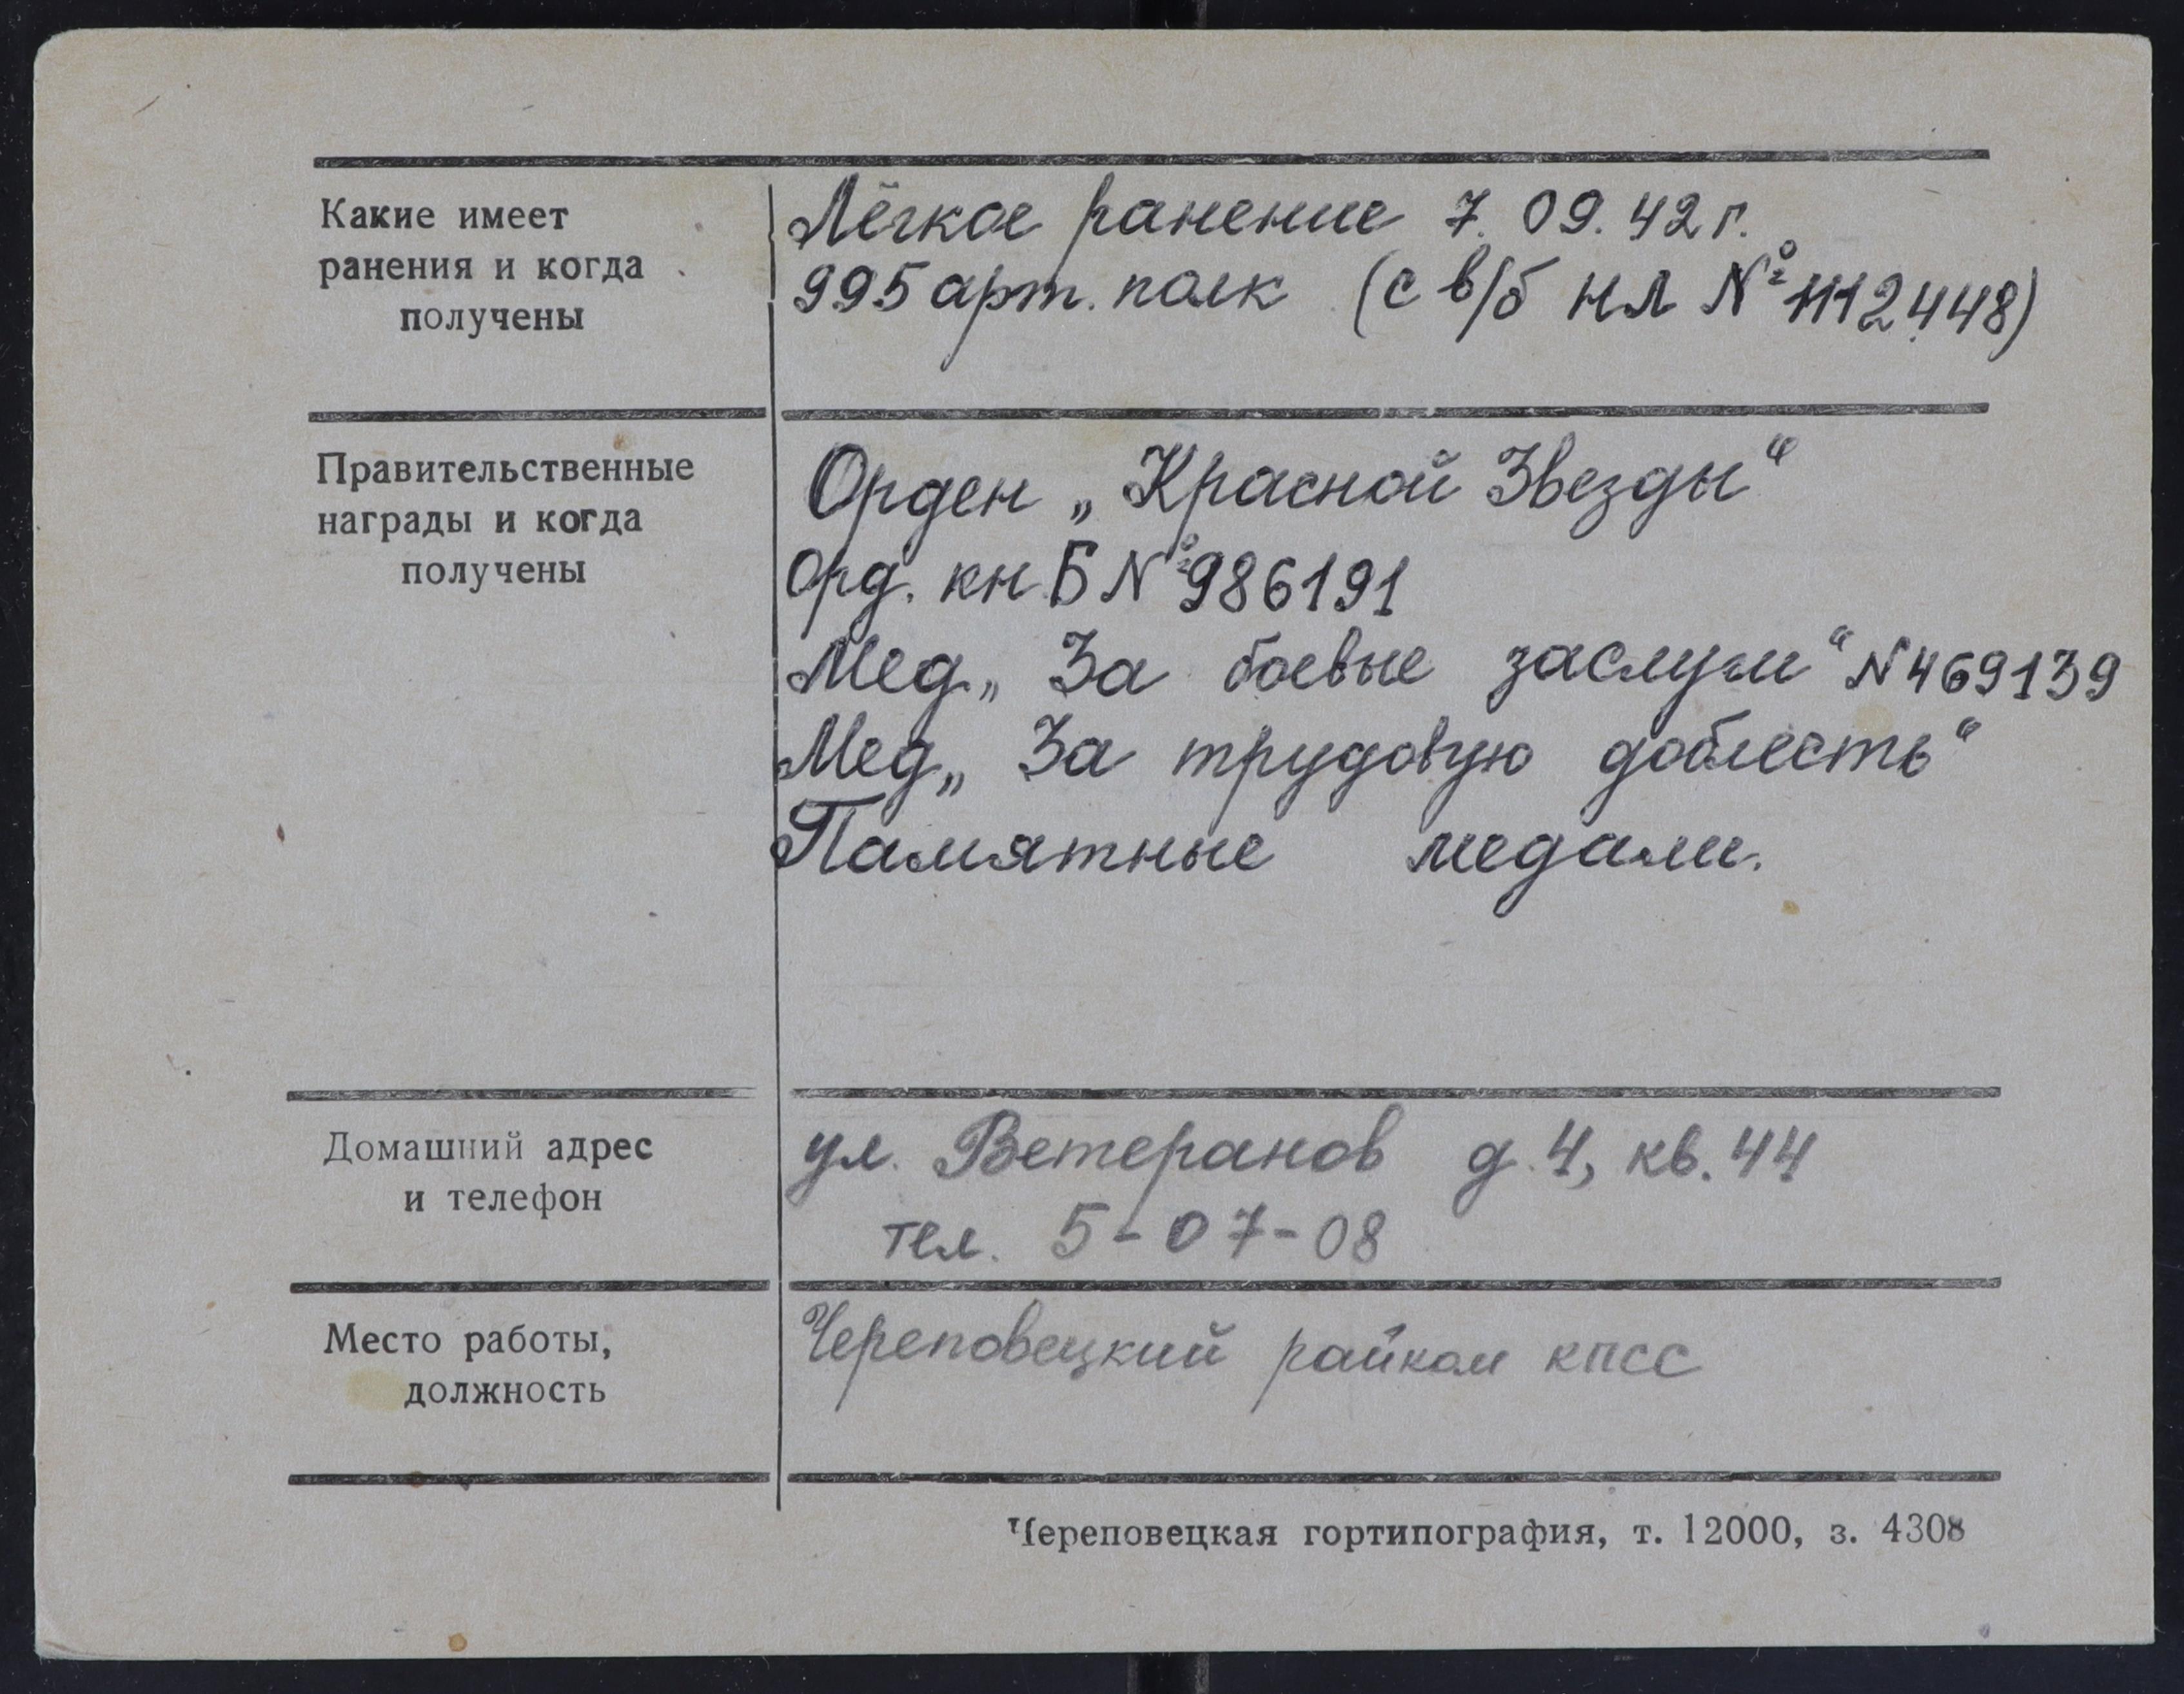 Какие имеет
ранения и когда
получены
Лёгкое ранение 7.09.42г.
995 арт. полк (с в/б НЛ № 1112448)
Правительственные
награды и когда
получены
Орден „Красной Звезды“
Орд. кн. Б № 986191
Мед. „За боевые заслуги“ N 469139
Мед „За трудовую доблесть“
Памятные медали.
Домашний адрес
и телефон
ул. Ветеранов д.4, кв.44
тел. 5-07-08
Место работы,
должность
Череповецкий райком кпсс
Череповецкая гортипография, т. 12000, з. 4308